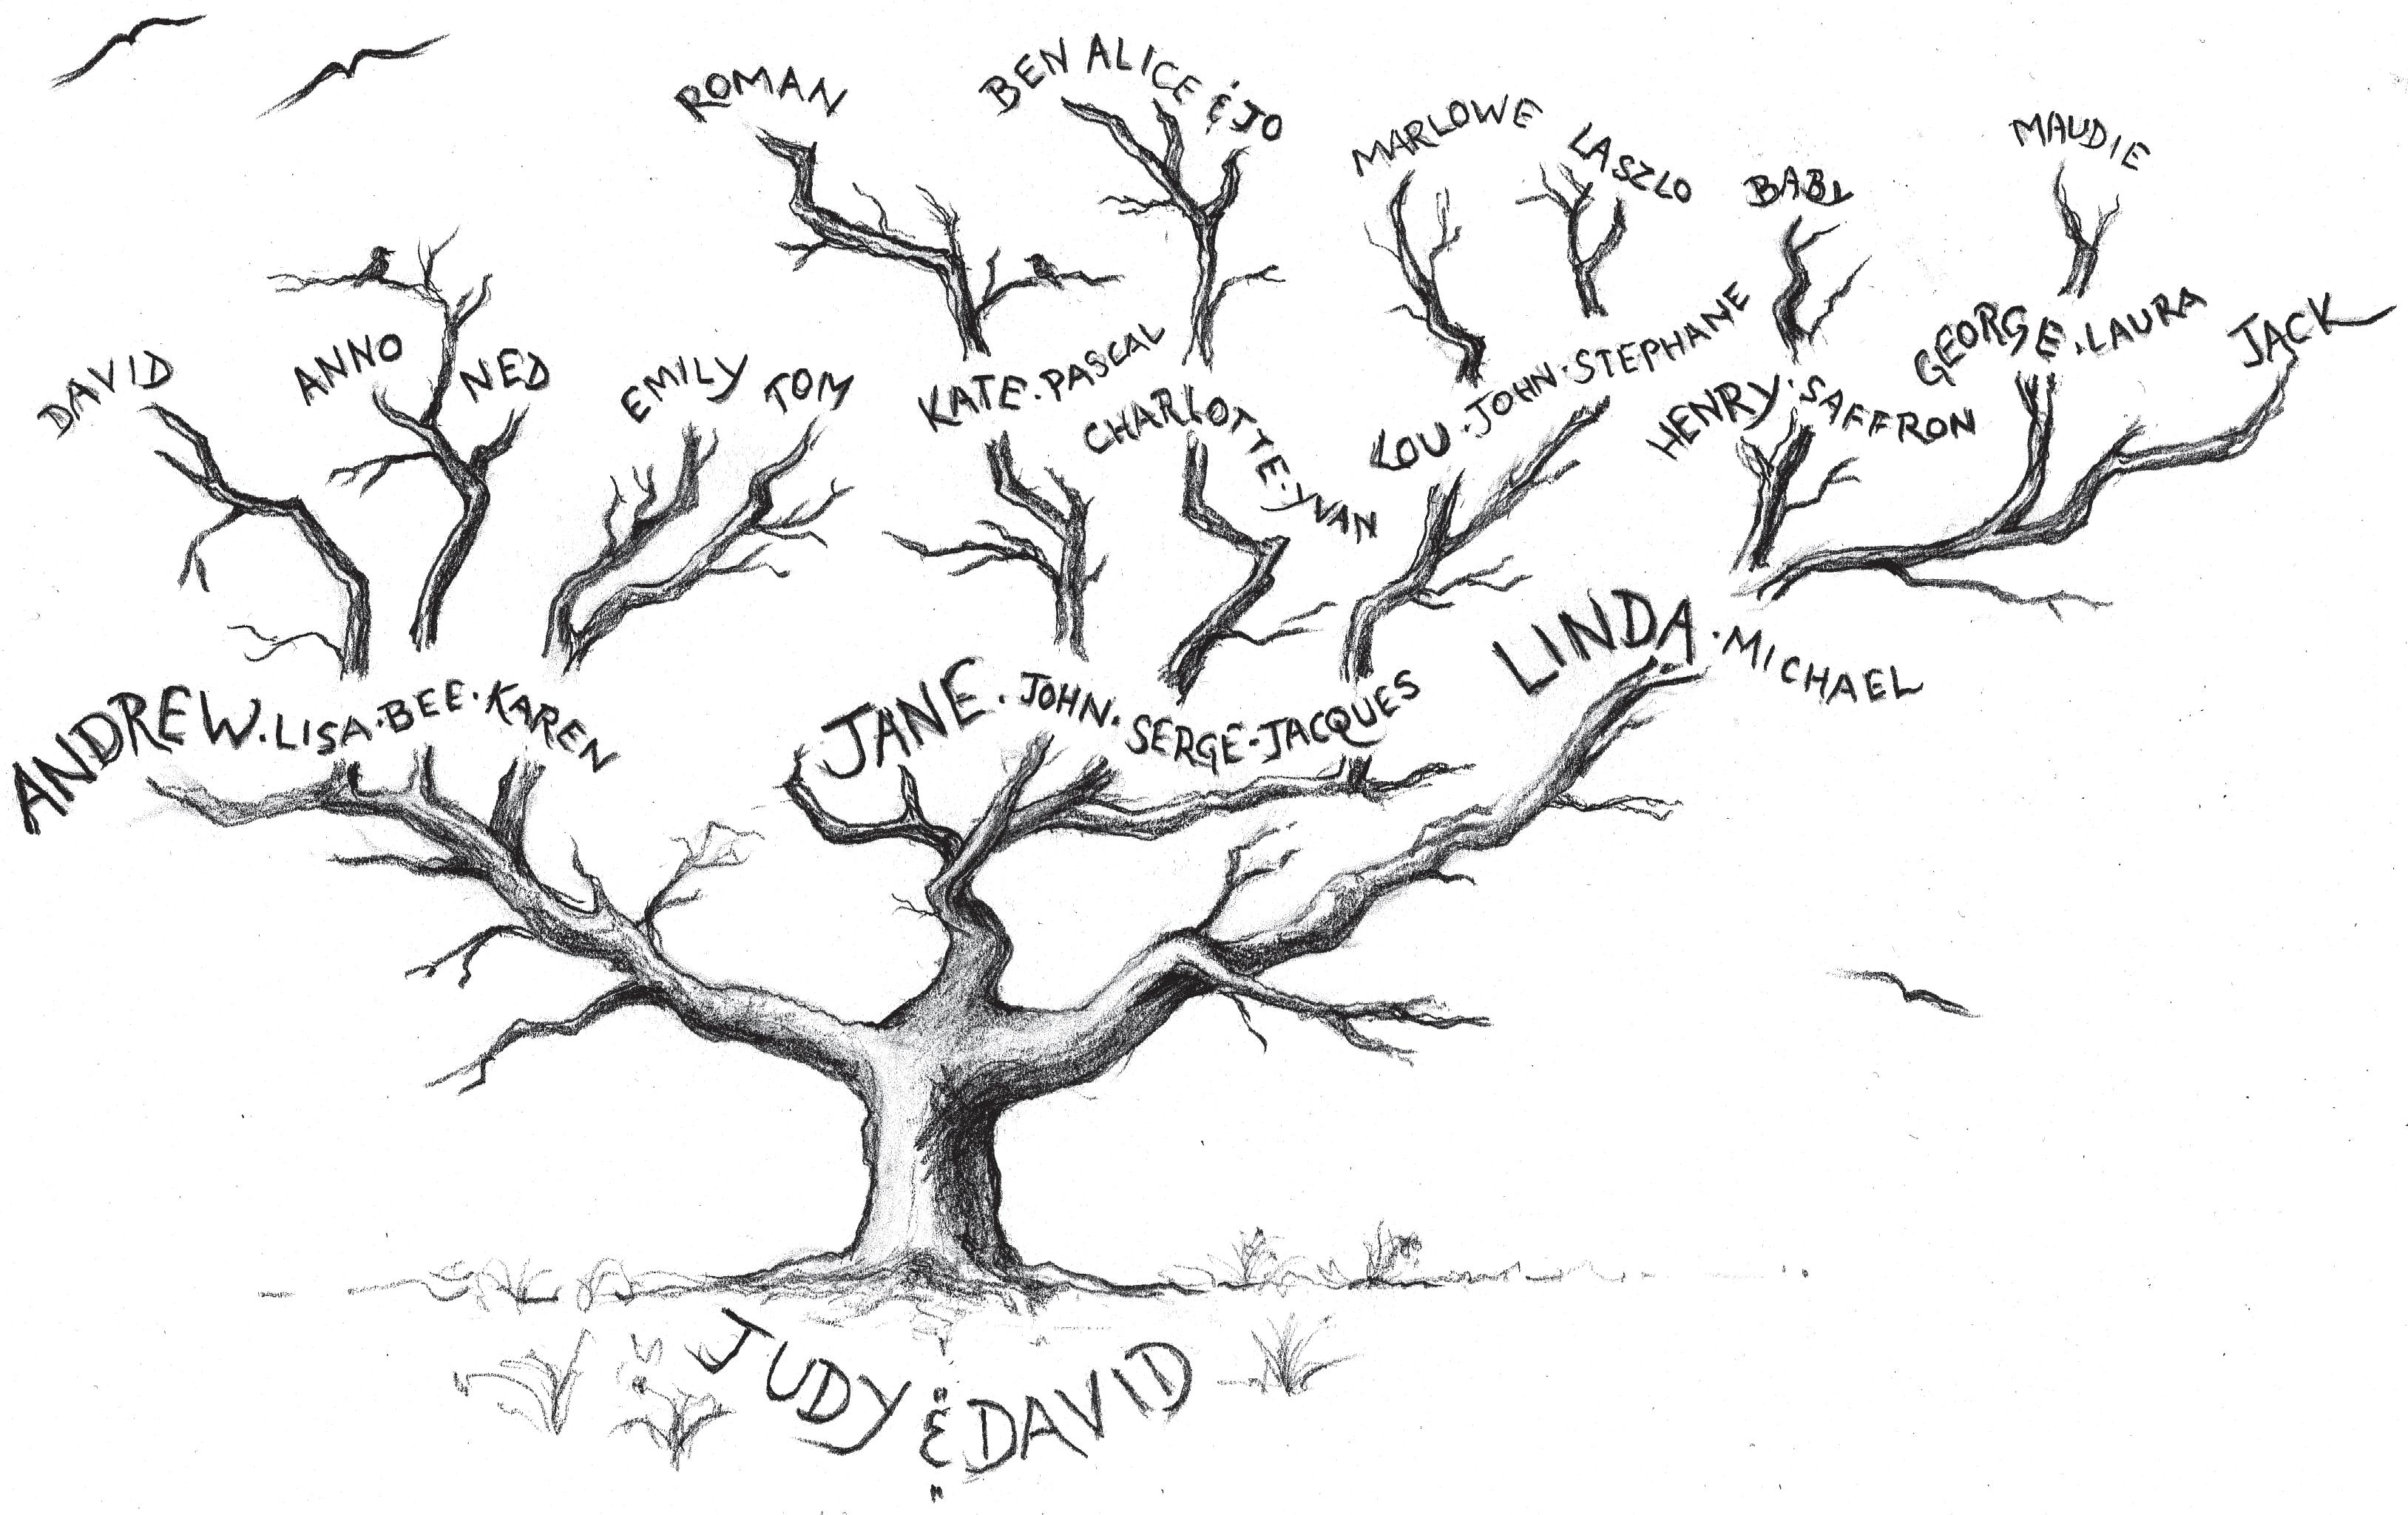 ROMAN
BEN ALICE & JO
MARLOWE
LASZLO
BABY
MAUDIE
DAVID
ANNO
NED
EMILY
TOM
KATE·PASCAL
CHARLOTTE·YVAN
LOU·JOHN·STEPHANE
HENRY·SAFFRON
GEORGE·LAURA
JACK
ANDREW·LISA·BEE·KAREN
JANE·JOHN·SERGE·JACQUES
LINDA·MICHAEL
JUDY & DAVID